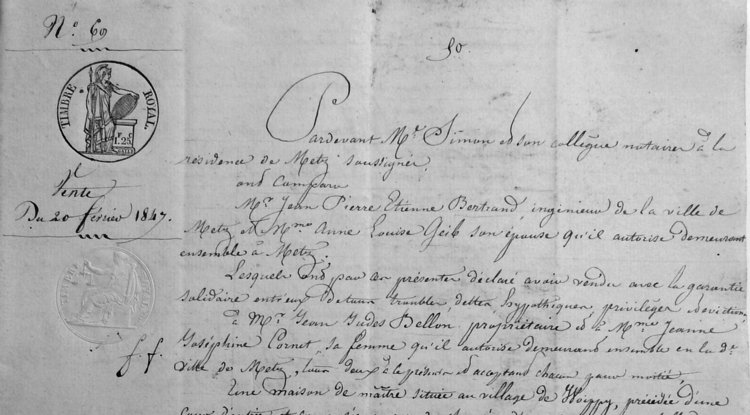 N° 69
50.
TIMBRE ROYAL.
F. C.
1.25
Vente
Du 20 février 1847.
f. f.
Pardevant Mr. Simon et son collègue notaires à la
résidence de Metz soussignés,
ont Comparu
Mr. Jean Pierre Etienne Bertrand, ingénieur de la ville de
Metz et Mme Anne Louise Geib son épouse qu'il autorise demeurant
ensemble à Metz.
Lesquels ont par ces présentes déclaré avoir vendu avec la garantie
solidaire entr'eux de tous troubles, dettes hypothèques, privilèges évictions
à Mr. Jean Judes Bellon, propriétaire et à Mme Jeanne
Joséphine Cornet, sa femme qu'il autorise demeurant ensemble en la de.
ville de Metz, tous deux à ce présents et acceptant chacun pour moitié,
Une maison de maître située au village de Woippy, précédée d'une